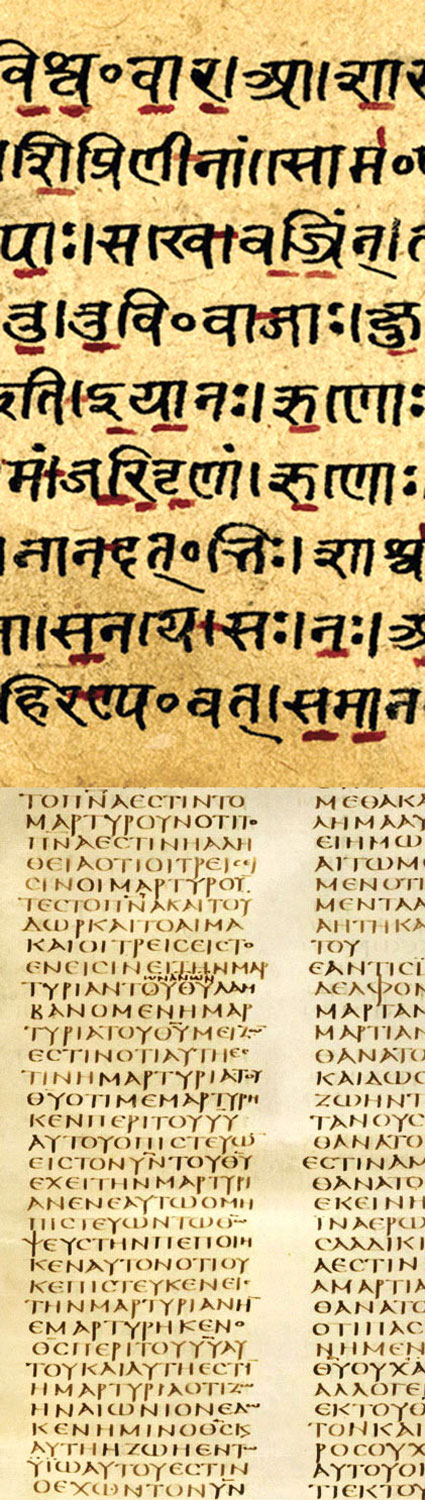 विश्व॰वार।आ।शा
शिप्रिणीनां॥सोम॰
पाः।सखे।वज्रिन्।
तु।तुवि॰वाजाः।क्षु
इयानः।ऋणोः
जरितॄणां।ऋणोः।
नानदत्॰भिः।शाश्व
सनये।सः।नः।
हिरण्य॰वत्।समान
ΤΟΠΝΑΕϹΤΙΝΤΟ
ΜΑΡΤΥΡΟΥΝΟΤΙΤΟ
ΠΝΑΕϹΤΙΝΗΑΛΗ
ΘΕΙΑΟΤΙΟΙΤΡΕΙϹΕΙ
ϹΙΝΟΙΜΑΡΤΥΡΟΥ̅
ΤΕϹΤΟΠΝΑΚΑΙΤΟΥ
ΔΩΡΚΑΙΤΟΑΙΜΑ
ΚΑΙΟΙΤΡΕΙϹΕΙϹΤΟ
ΕΝΕΙϹΙΝΕΙΤΗΝΜΑΡ
ΤΥΡΙΑΝΤΟΥΘΥΛΑΜ
ΒΑΝΟΜΕΝΗΜΑΡ
ΤΥΡΙΑΤΟΥΘΥΜΕΙΖΩ̅
ΕϹΤΙΝΟΤΙΑΥΤΗΕϹ
ΤΙΝΗΜΑΡΤΥΡΙΑΤΟΥ
ΘΥΟΤΙΜΕΜΑΡΤΥΡΗ
ΚΕΝΠΕΡΙΤΟΥΥΥ
ΑΥΤΟΥΟΠΙϹΤΕΥΩ̅
ΕΙϹΤΟΝΥΝΤΟΥΘΥ
ΕΧΕΙΤΗΝΜΑΡΤΥΡΙ
ΑΝΕΝΕΑΥΤΩΟΜΗ
ΠΙϹΤΕΥΩΝΤΩΘΩ
ΨΕΥϹΤΗΝΠΕΠΟΙΗ
ΚΕΝΑΥΤΟΝΟΤΙΟΥ
ΚΕΠΙϹΤΕΥΚΕΝΕΙϹ
ΤΗΝΜΑΡΤΥΡΙΑΝΗ̅
ΕΜΑΡΤΥΡΗΚΕΝΟ
ΘϹΠΕΡΙΤΟΥΥΥΑΥ
ΤΟΥΚΑΙΑΥΤΗΕϹΤΙ̅
ΗΜΑΡΤΥΡΙΑΟΤΙΖΩ
ΗΝΑΙΩΝΙΟΝΕΔΩ
ΚΕΝΗΜΙΝΟΘϹΚΑΙ
ΑΥΤΗΗΖΩΗΕΝΤΩ
ΥΙΩΑΥΤΟΥΕϹΤΙΝ
ΟΕΧΩΝΤΟΝΥΝ
ΜΕΘΑΚΑ
ΛΗΜΑΑΥ
ΕΙΗΜΩ
ΑΙΤΩΜ
ΜΕΝΟΤΙ
ΜΕΝΤΑΑ
ΑΗΤΗΚΑ
ΤΟΥ
ΕΑΝΤΙϹΙ
ΑΔΕΛΦΟΝ
ΜΑΡΤΑΝ
ΜΑΡΤΙΑΝ
ΘΑΝΑΤΟ
ΚΑΙΔΩϹ
ΖΩΗΝΤ
ΤΑΝΟΥϹ
ΘΑΝΑΤΟ
ΕϹΤΙΝΑΜ
ΘΑΝΑΤΟ
ΕΚΕΙΝΗ
ΙΝΑΕΡΩ
ϹΑΑΔΙΚΙ
ΑΕϹΤΙΝ
ΑΜΑΡΤΙΑ
ΘΑΝΑΤΟ
ΟΤΙΠΑϹ
ΝΗΜΕΝ
ΘΥΟΥΧΑ
ΑΛΛΟΓΕ
ΕΚΤΟΥΘ
ΤΟΝΚΑΙ
ΡΟϹΟΥΧ
ΑΥΤΟΥΟΙ
ΤΙΕΚΤΟΥ